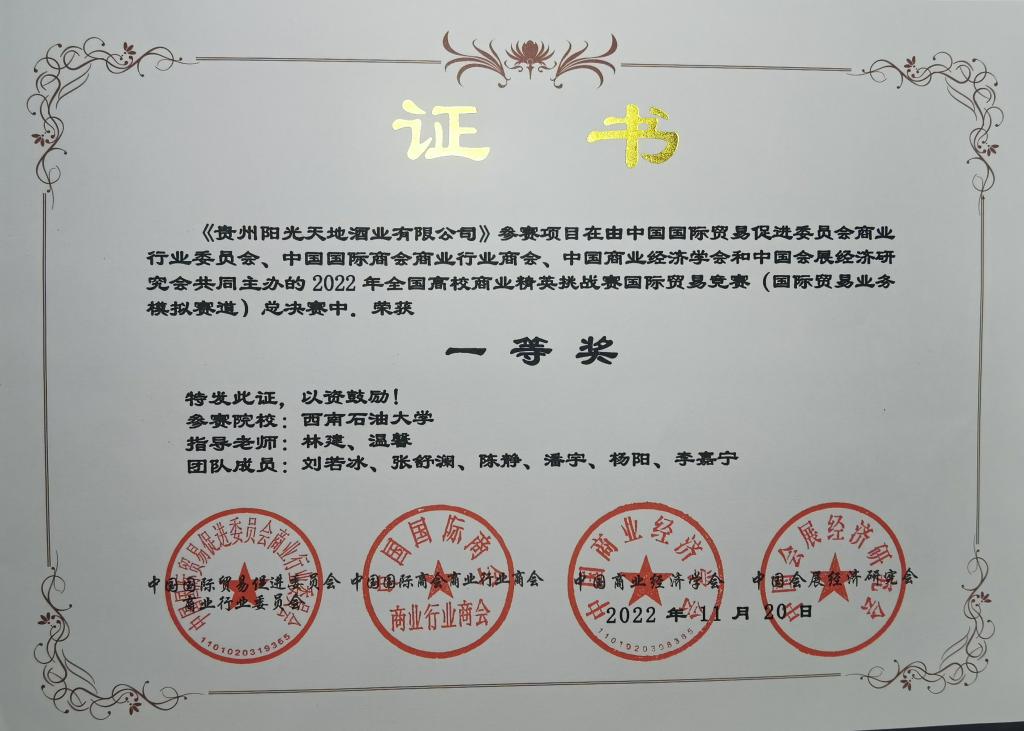 证书
《贵州阳光天地酒业有限公司》参赛项目在由中国国际贸易促进委员会商业
行业委员会、中国国际商会商业行业商会、中国商业经济学会和中国会展经济研
究会共同主办的2022年全国高校商业精英挑战赛国际贸易竞赛（国际贸易业务
模拟赛道）总决赛中．荣获
一等奖
特发此证，以资鼓励！
参赛院校：西南石油大学
指导老师：林建、温馨
团队成员：刘若冰、张舒澜、陈静、潘宇、杨阳、李嘉宁
中国国际贸易促进委员会商业行业委员会
中国国际商会
中国商业经济学会
中国会展经济研究会
中国国际贸易促进委员会 中国国际商会商业行业商会 中国商业经济学会 中国会展经济研究会
商业行业委员会
商业行业商会
2022年11月20日
1101020319365